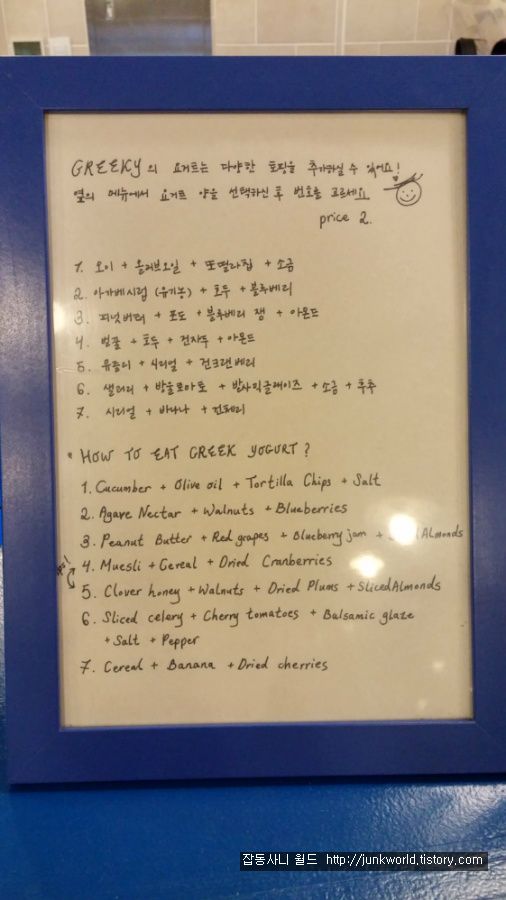 GREEKY의 요거트는 다양한 토핑을 추가하실 수 있어요!
옆의 메뉴에서 요거트 양을 선택하신 후 번호를 고르세요
price 2.
1. 오이 + 올리브오일 + 또띨라칩 + 소금
2. 아가베시럽 (유기농) + 호두 + 블루베리
3. 피넛버터 + 포도 + 블루베리 쨈 + 아몬드
4. 벌꿀 + 호두 + 건자두 + 아몬드
5. 뮤즐리 + 시리얼 + 건크랜베리
6. 샐러리 + 방울토마토 + 발사믹글레이즈 + 소금 + 후추
7. 시리얼 + 바나나 + 건체리
* HOW TO EAT GREEK YOGURT?
1. Cucumber + Olive oil + Tortilla Chips + Salt
2. Agave Nectar + Walnuts + Blueberries
3. Peanut Butter + Red grapes + Blueberry jam + Almonds
4. Muesli + Cereal + Dried Cranberries
5. Clover honey + Walnuts + Dried Plums + Sliced Almonds
6. Sliced celery + Cherry tomatoes + Balsamic glaze
+ Salt + Pepper
7. Cereal + Banana + Dried cherries
잡동사니 월드 http://junkworld.tistory.com